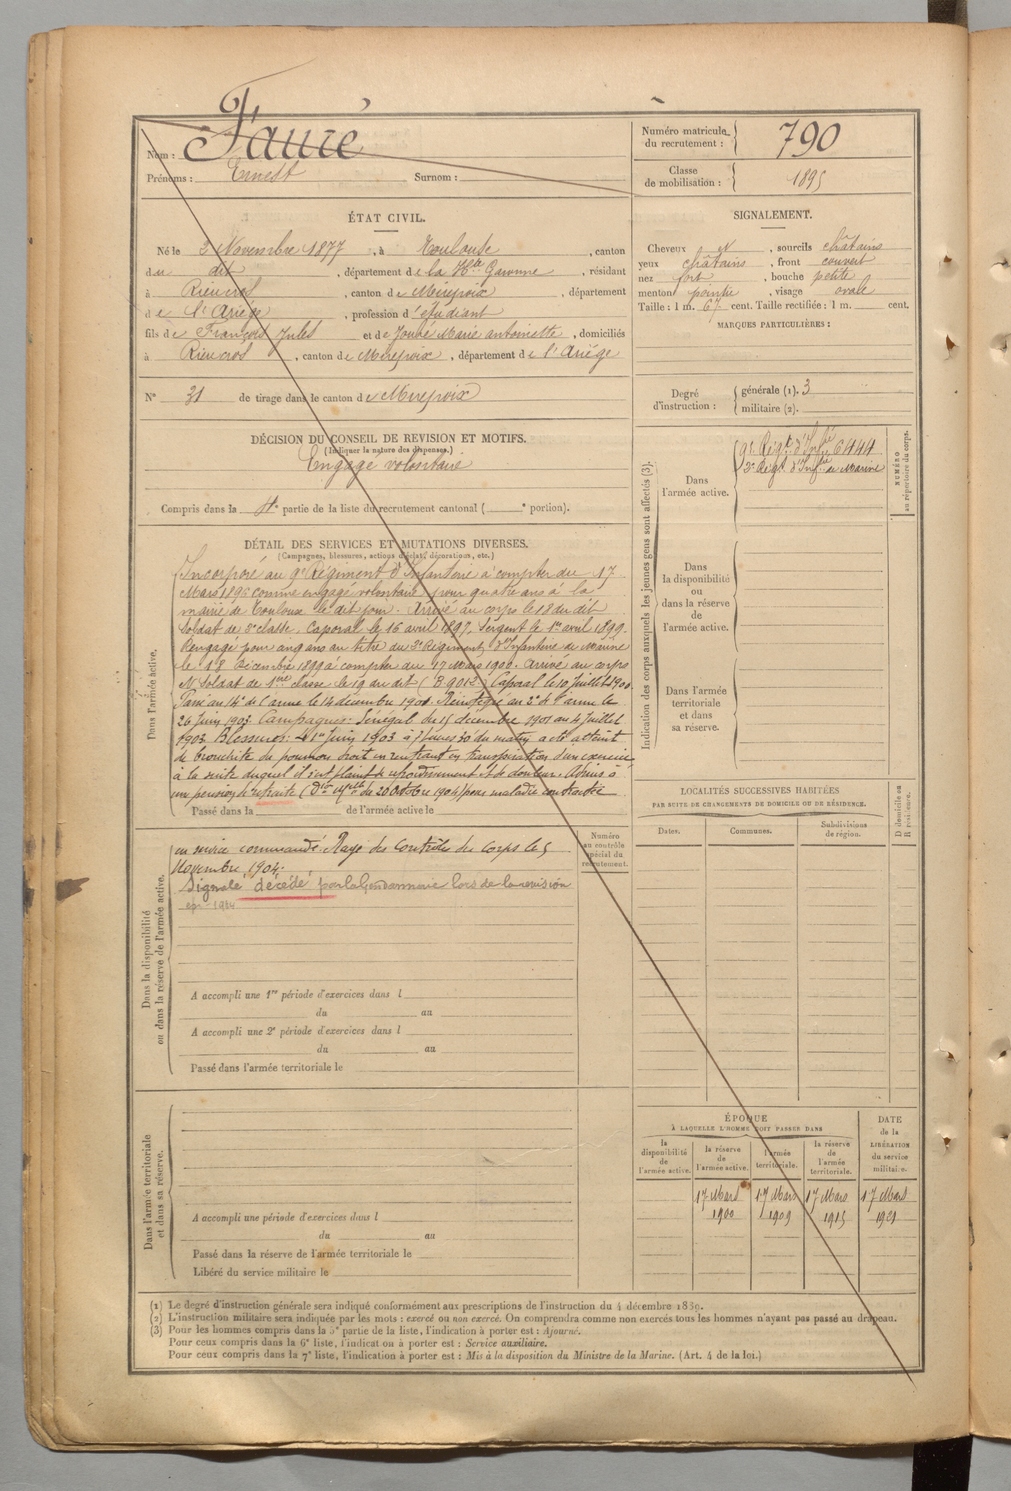 Nom : Fauré
Prénoms : Ernest Surnom :
Numéro matricule du recrutement : 790
Classe de mobilisation : 1895
ÉTAT CIVIL.
Né le 2 Novembre 1877, à Toulouse, canton
du dit, département de la Hte Garonne, résidant
à Rieucros, canton de Mirepoix, département
de l'Ariège, profession d'étudiant
fils de François Jules et de Marie antoinette, domiciliés
à Rieucros, canton de Mirepoix, département de l'Ariége
N° 31 de tirage dans le canton de Mirepoix
DÉCISION DU CONSEIL DE REVISION ET MOTIFS.
(Indiquer la nature des dispenses.)
Engagé volontaire
Compris dans la 4e partie de la liste du recrutement cantonal ( e portion).
SIGNALEMENT.
Cheveux N, sourcils châtains
yeux châtains, front couvert
nez fort, bouche petite
menton pointu, visage ovale
Taille : 1 m. 67 cent. Taille rectifiée : 1 m. cent.
MARQUES PARTICULIÈRES :
Degré d'instruction : générale (1). 3
militaire (2).
DÉTAIL DES SERVICES ET MUTATIONS DIVERSES.
(Campagnes, blessures, actions d'éclat, décorations, etc.)
Dans l'armée active.
Incorporé au 9e Régiment d'Infanterie à compter du 17
Mars 1896 comme engagé volontaire pour quatre ans à la
mairie de Toulouse le dit jour. Arrivé au corps le 18 du dit
Soldat de 2e classe. Caporal le 16 avril 1897. Sergent le 1er avril 1899.
Rengagé pour cinq ans au titre du 3e Régiment d'Infanterie de Marine
le 18 Décembre 1899 à compter du 17 Mars 1900. Arrivé au corps
et Soldat de 1ère classe le 19 du dit (B 9012) Caporal le 10 Juillet 1900
Passé au 14e de l'arme le 14 décembre 1901. Réintégré au 3e de l'arme le
26 Juin 1903. Campagnes : Sénégal du 15 décembre 1901 au 4 Juillet
1903. Blessures : le 1er Juin 1903 à 7 heures 30 du matin a été atteint
de bronchite du poumon droit en rentrant en transpiration d'un exercice
à la suite duquel il s'est plaint de refroidissement et de douleur. Admis à
un pension de retraite ( du 20 Octobre 1904) pour maladie contractée
Passé dans la de l'armée active le
Dans la disponibilité
ou dans la réserve de l'armée active.
en service commandé. Rayé des contrôles du corps le 5
Novembre 1904.
Signalé décédé par la Gendarmerie lors de la révision
1914
Numéro au contrôle spécial du recrutement.
A accompli une 1re période d'exercices dans l
du au
A accompli une 2e période d'exercices dans l
du au
Passé dans l'armée territoriale le
Dans l'armée territoriale
et dans sa réserve.
A accompli une période d'exercices dans l
du au
Passé dans la réserve de l'armée territoriale le
Libéré du service militaire le
Indication des corps auxquels les jeunes gens sont affectés (3).
Dans l'armée active.
9e Régt d'Infie 6444
3e Régt d'Infie de Marine
NUMÉRO au répertoire du corps.
Dans la disponibilité ou dans la réserve de l'armée active.
Dans l'armée territoriale et dans sa réserve.
LOCALITÉS SUCCESSIVES HABITÉES
PAR SUITE DE CHANGEMENTS DE DOMICILE OU DE RÉSIDENCE.
Dates. Communes. Subdivisions de région.
D domicile ou R résidence.
ÉPOQUE
À LAQUELLE L'HOMME DOIT PASSER DANS
la disponibilité de l'armée active.
la réserve de l'armée active.
l'armée territoriale.
la réserve de l'armée territoriale.
DATE de la LIBÉRATION du service militaire.
17 Mars 17 Mars 17 Mars 17 Mars
1900 1909 1915 1921
(1) Le degré d'instruction générale sera indiqué conformément aux prescriptions de l'instruction du 4 décembre 1889.
(2) L'instruction militaire sera indiquée par les mots : exercé ou non exercé. On comprendra comme non exercés tous les hommes n'ayant pas passé au drapeau.
(3) Pour les hommes compris dans la 5e partie de la liste, l'indication à porter est : Ajourné.
Pour ceux compris dans la 6e liste, l'indication à porter est : Service auxiliaire.
Pour ceux compris dans la 7e liste, l'indication à porter est : Mis à la disposition du Ministre de la Marine. (Art. 4 de la loi.)